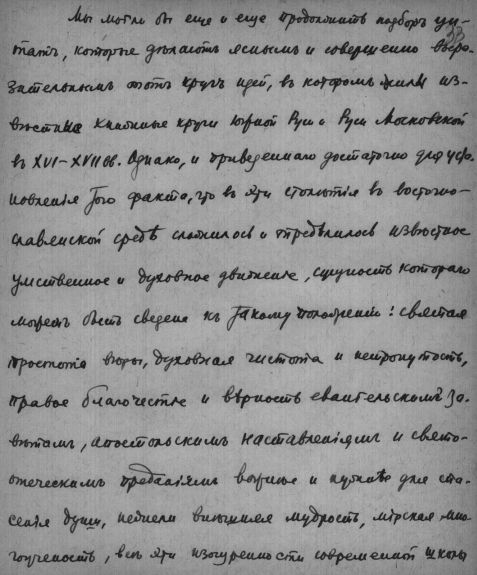 Мы могли бы еще и еще продолжить подборъ ци-
33
татъ, которые дѣлаютъ яснымъ и совершенно выра-
зительнымъ этотъ кругъ идей, въ которомъ жили из-
вѣстные книжные круги Южной Руси и Руси Московской
въ XVI–XVII вв. Однако, и приведеннаго достаточно для уста-
новленія того факта, что въ эти столѣтія въ восточно-
славянской средѣ сложилось и опредѣлилось извѣстное
умственное и духовное движеніе, сущность котораго
можетъ быть сведена къ такому положенію: святая
простота вѣры, духовная чистота и нетронутость,
правое благочестіе и вѣрность евангельскимъ за-
вѣтамъ, апостольскимъ наставленіямъ и свято-
отеческимъ преданіямъ важнѣе и нужнѣе для спа-
сенія души, нежели внѣшняя мудрость, мірская мно-
гоученость, всѣ эти изощренности современной школы